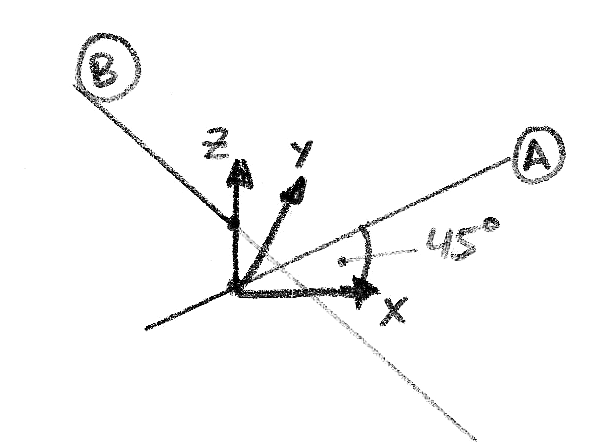 B
Z
Y
A
45°
X